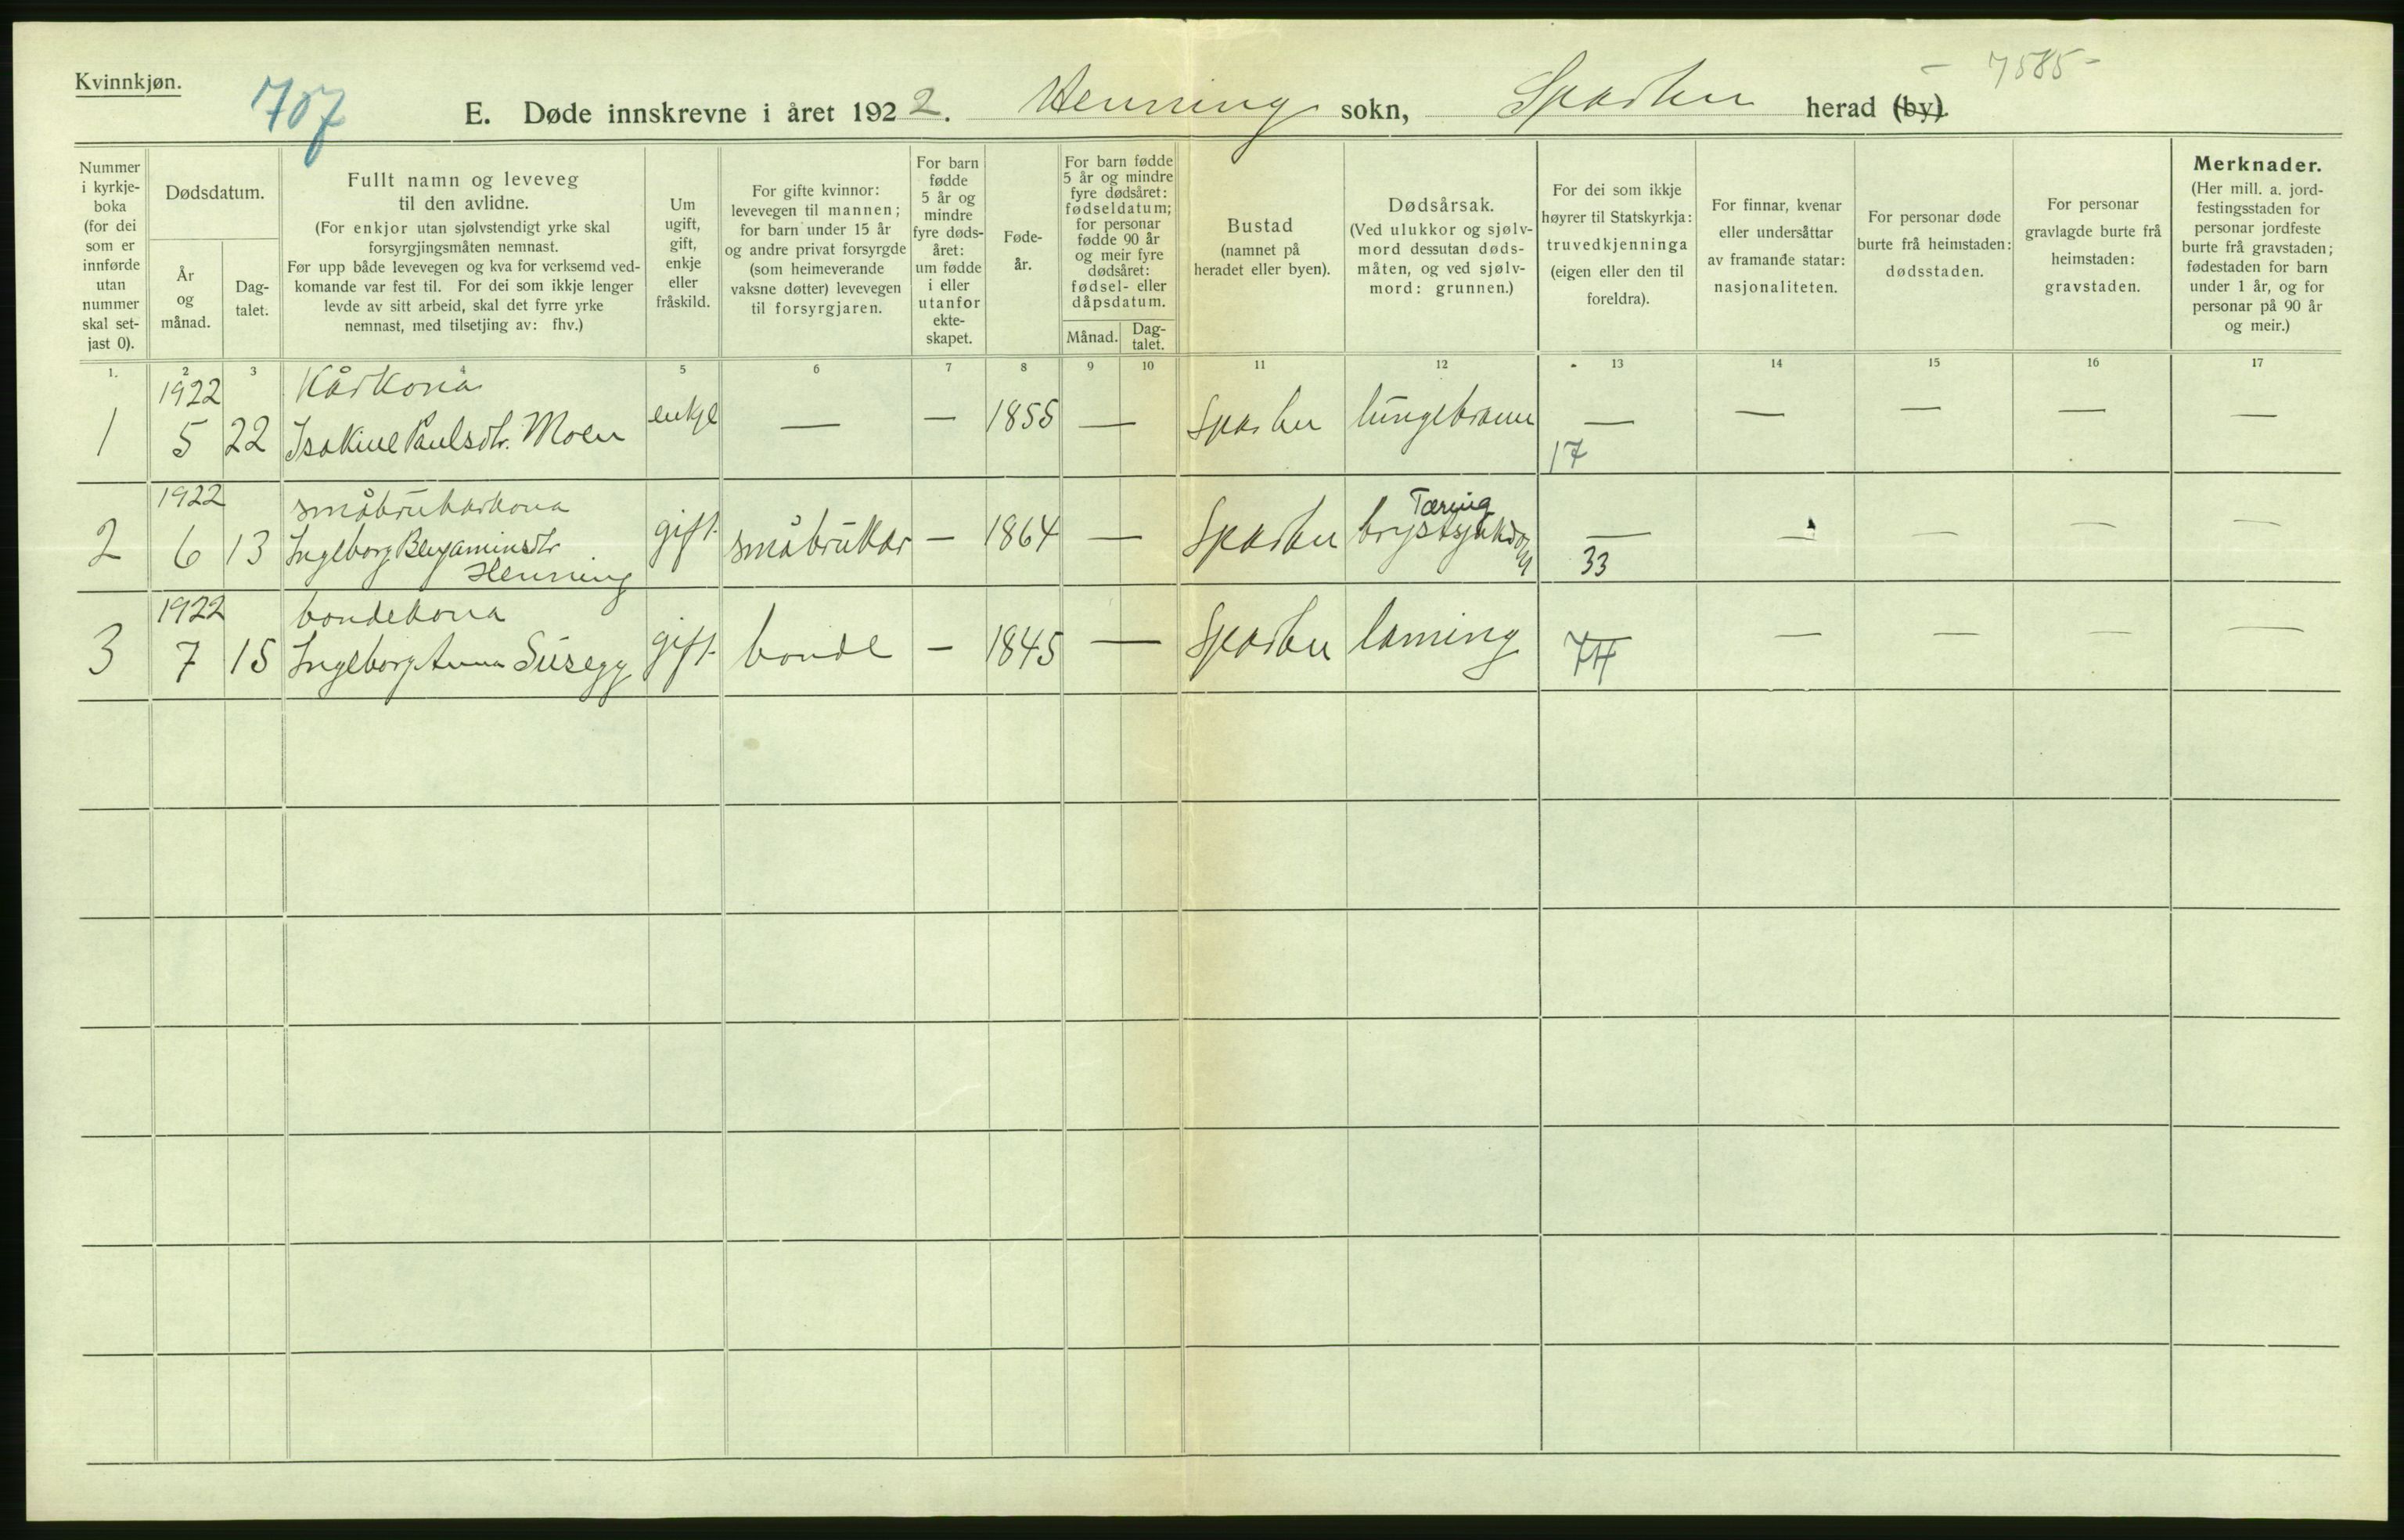 Kvinnkjøn.
707
7585
E. Døde innskrevne i året 1922. Henning sokn, Sparbu herad (by).
Nummer i kyrkje-boka (for dei som er innførde utan nummer skal set-jast 0).
Dødsdatum.
År og månad.
Dag-talet.
Fullt namn og leveveg til den avlidne.
(For enkjor utan sjølvstendigt yrke skal forsyrgjingsmåten nemnast.
Før upp både levevegen og kva for verksemd ved-komande var fest til. For dei som ikkje lenger levde av sitt arbeid, skal det fyrre yrke nemnast, med tilsetjing av: fhv.)
Um ugift, gift, enkje eller fråskild.
For gifte kvinnor: levevegen til mannen; for barn under 15 år og andre privat forsyrgde (som heimeverande vaksne døtter) levevegen til forsyrgjaren.
For barn fødde 5 år og mindre fyre døds-året: um fødde i eller utanfor ekte-skapet.
Føde-år.
For barn fødde 5 år og mindre fyre dødsåret: fødseldatum; for personar fødde 90 år og meir fyre dødsåret: fødsel- eller dåpsdatum.
Månad.
Dag-talet.
Bustad (namnet på heradet eller byen).
Dødsårsak. (Ved ulukkor og sjølv-mord dessutan døds-måten, og ved sjølv-mord: grunnen.)
For dei som ikkje høyrer til Statskyrkja: truvedkjenninga (eigen eller den til foreldra).
For finnar, kvenar eller undersåttar av framande statar: nasjonaliteten.
For personar døde burte frå heimstaden: dødsstaden.
For personar gravlagde burte frå heimstaden: gravstaden.
Merknader.
(Her mill. a. jord-festingsstaden for personar jordfeste burte frå gravstaden; fødestaden for barn under 1 år, og for personar på 90 år og meir.)
1. 2 3 4 5 6 7 8 9 10 11 12 13 14 15 16 17
1922 Kårkona
1 5 22 Isakine Paulsdtr. Moen enkje — — 1855 — Sparbu lungebrann — — — — —
17
1922 småbrukarkona Tæring
2 6 13 Ingeborg Benjaminsdtr gift småbrukar — 1864 — Sparbu brystsjukdom — — — — —
Henning 33
1922 bondekona
3 7 15 Ingeborg Anna Susegg gift bonde — 1845 — Sparbu laming — — — — —
74